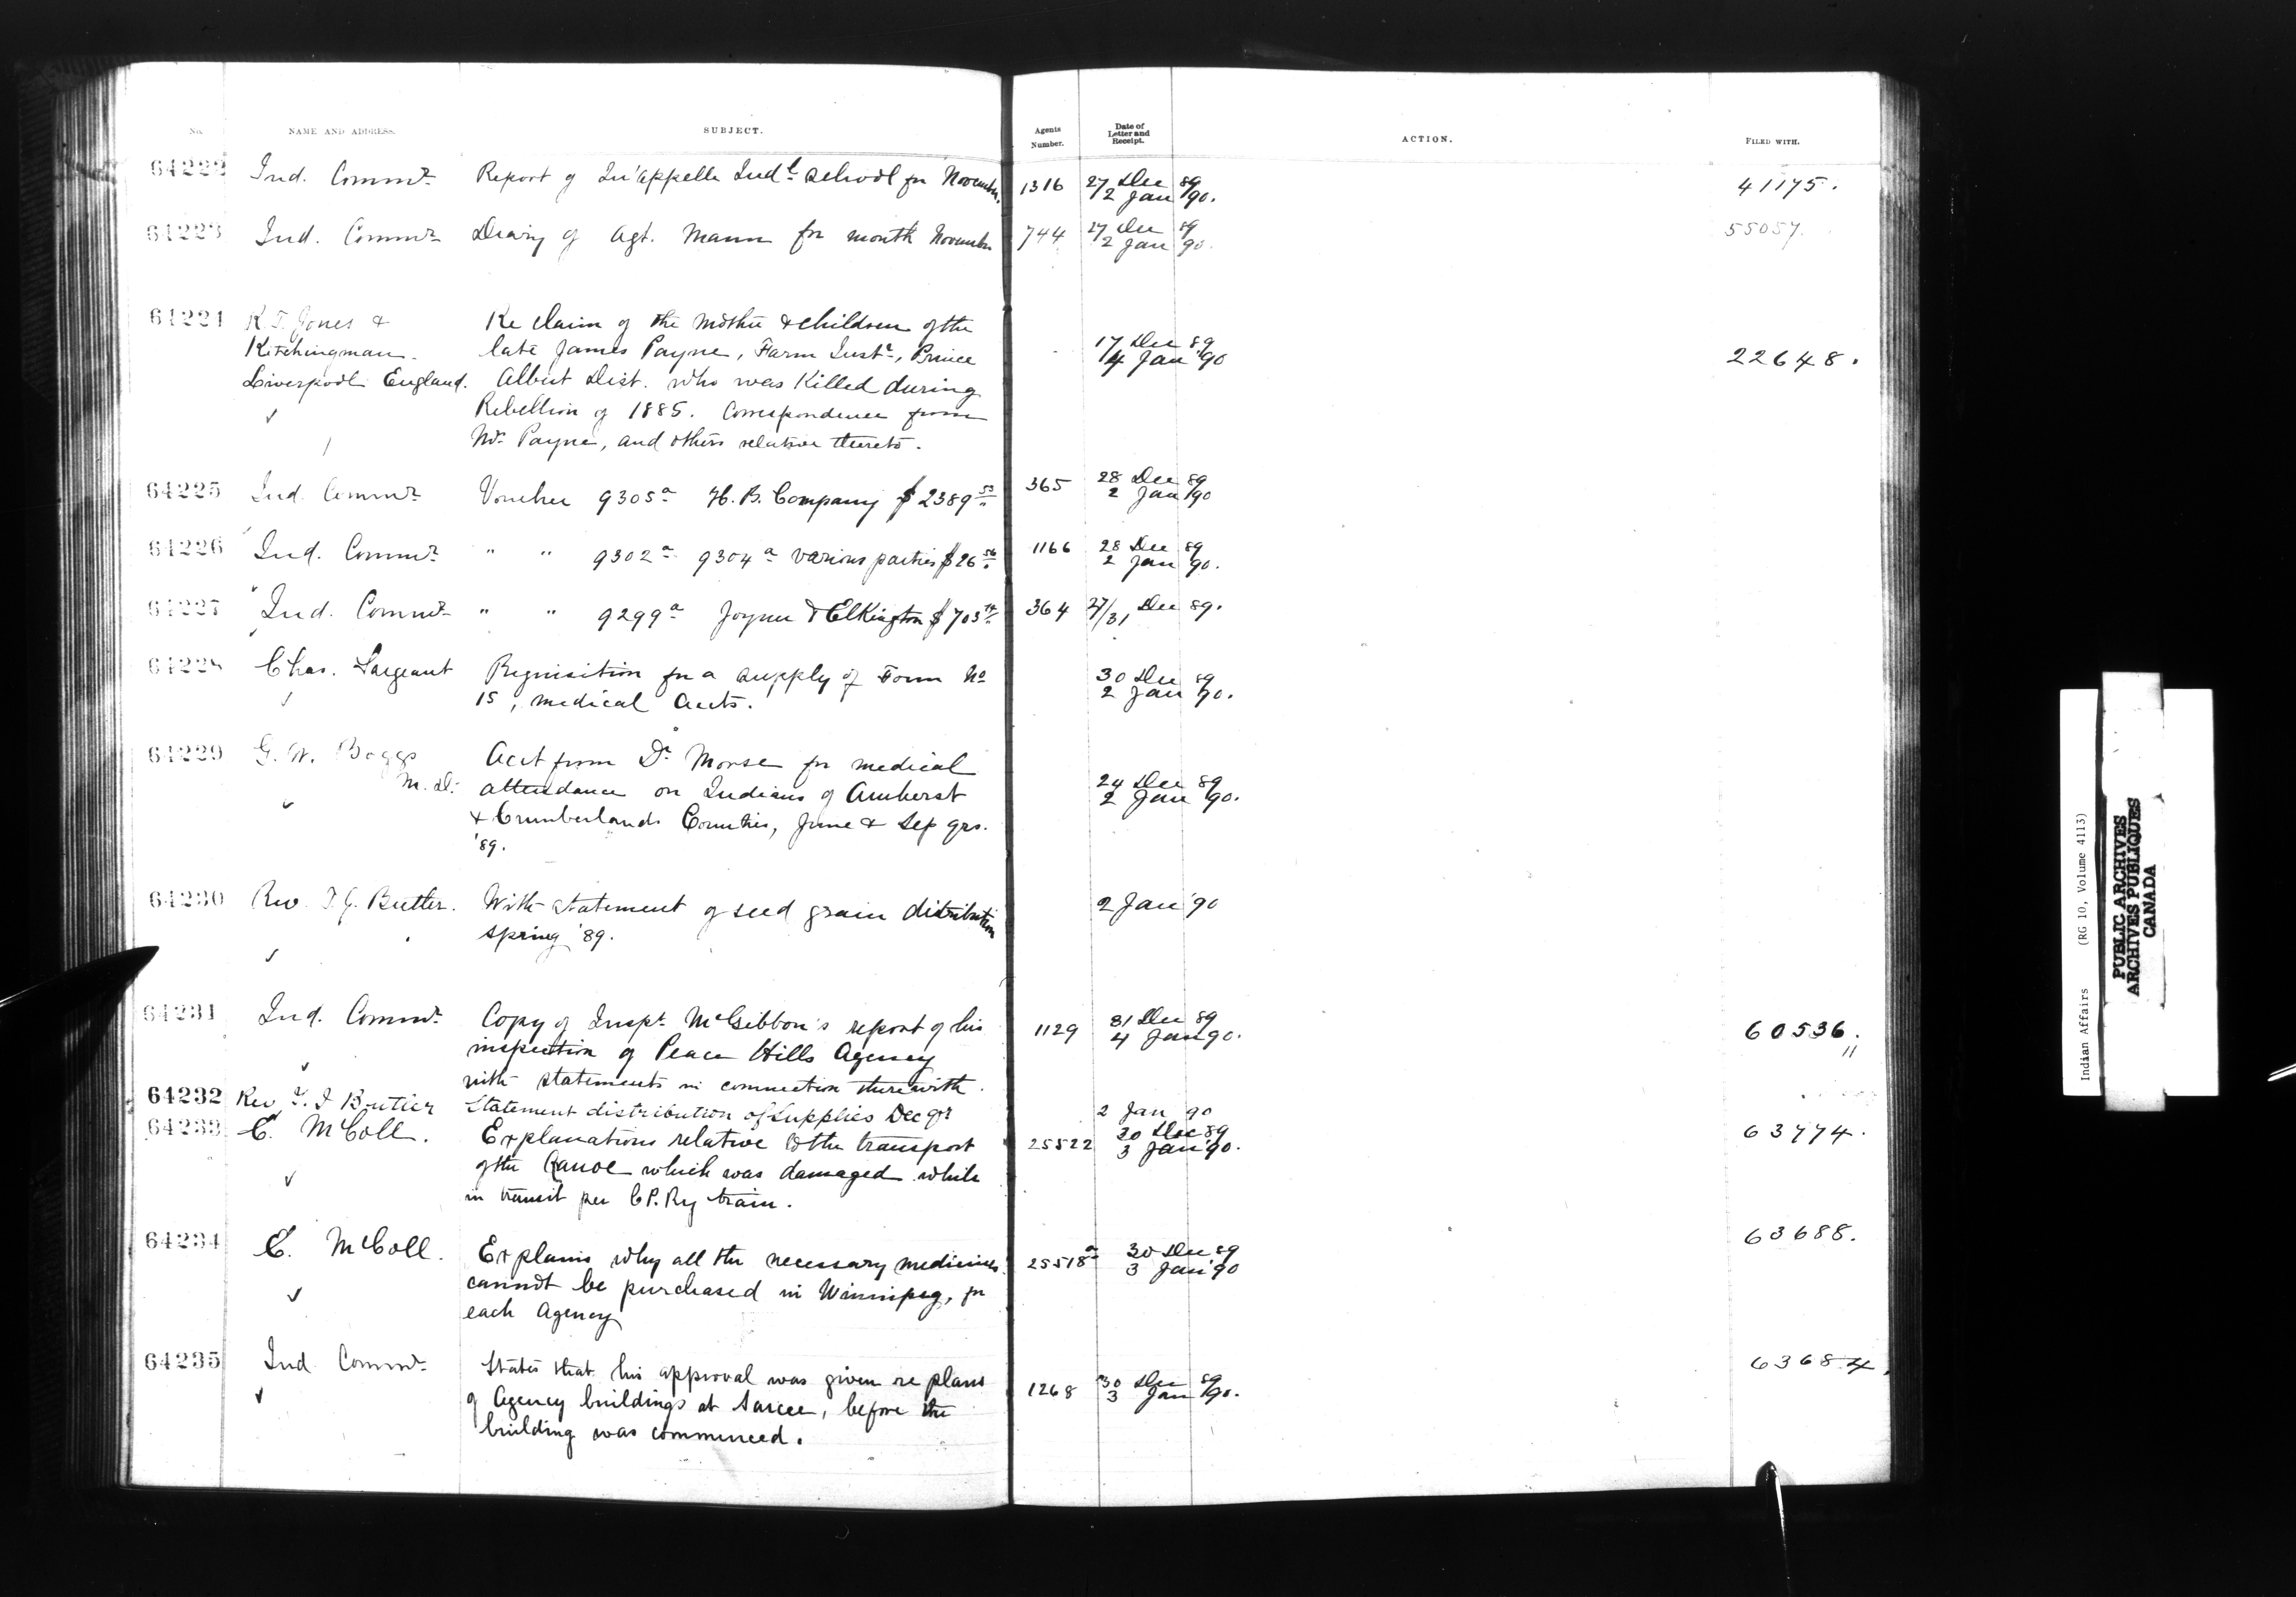 No. NAME AND ADDRESS. SUBJECT. Agents Number. Date of Letter and Receipt. ACTION. FILED WITH.
64222 Ind. Commr. Report of Qu'appelle Indl. School for November. 1316 27 Dec 89 41175.
2 Jan '90.
64223 Ind. Commr. Diary of Agt. Mann for month November 744 27 Dec 89 55057.
2 Jan 90.
64224 R.T. Jones & Re claim of the mother & children of the
Kitchingman. late James Payne, Farm Instr., Prince 17 Dec 89 22648.
Liverpool England. Albert Dist. who was Killed during 4 Jan '90
Rebellion of 1885. Correspondence from
Mr. Payne, and others relative thereto.
64225 Ind. Commr. Voucher 9305a H. B. Company $2389 53 365 28 Dec 89
2 Jan '90
64226 Ind. Commr. " " 9302a 9304a various parties $26 56 1166 28 Dec 89
2 Jan 90.
64227 Ind. Commr. " " 9299a Joyner & Elkington $703 364 27/31 Dec 89.
64228 Chas. Sargeant Requisition for a supply of Form No 30 Dec 89
15, medical accts. 2 Jan 90.
64229 G. W. Boggs Acct from Dr. Morse for medical
M.D. attendance on Indians of Amherst 24 Dec 89
& Cumberlands Counties, June & Sep qrs. 2 Jan '90.
'89.
64230 Rev. T. J. Butler. With statement of seed grain distribution 2 Jan '90
spring '89.
64231 Ind. Commr. Copy of Inspt. McGibbon's report of his 1129 31 Dec 89 60536.
inspection of Peace Hills Agency 4 Jan 90. "
with statements in connection therewith.
64232 Rev. T. J. Butler Statement distribution of Supplies Dec qr 2 Jan 90
64233 E. McColl. Explanations relative to the transport 25522 30 Dec 89 63774.
of the Canoe which was damaged while 3 Jan '90.
in transit per C.P. Ry train.
64234 E. McColl. Explains why all the necessary medicines 25518a 30 Dec 89 63688.
cannot be purchased in Winnipeg, for 3 Jan '90
each Agency
64235 Ind. Commr. States that his approval was given re plans 63684.
of Agency buildings at Sarcee, before the 1268 30 Dec 89
building was commenced. 3 Jan '90.
Indian Affairs (RG 10, Volume 4113)
PUBLIC ARCHIVES
ARCHIVES PUBLIQUES
CANADA